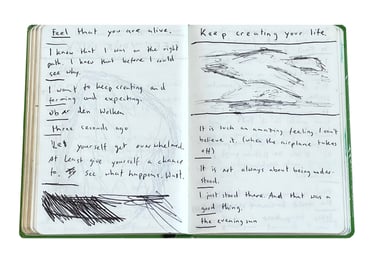 Feel that you are alive.
I know that I was on the right
path. I knew that before I could
see why.
I want to keep creating and
forming und expecting.
über den Wolken
three seconds ago
Let yourself get overwhelmed.
At least give yourself a chance
to. To see what happens. Wait.
Keep creating your life.
It is such an amazing feeling I can't
believe it. (when the airplane takes
off)
It is not always about being under-
stood.
I just stood there. And that was a
good thing.
the evening sun